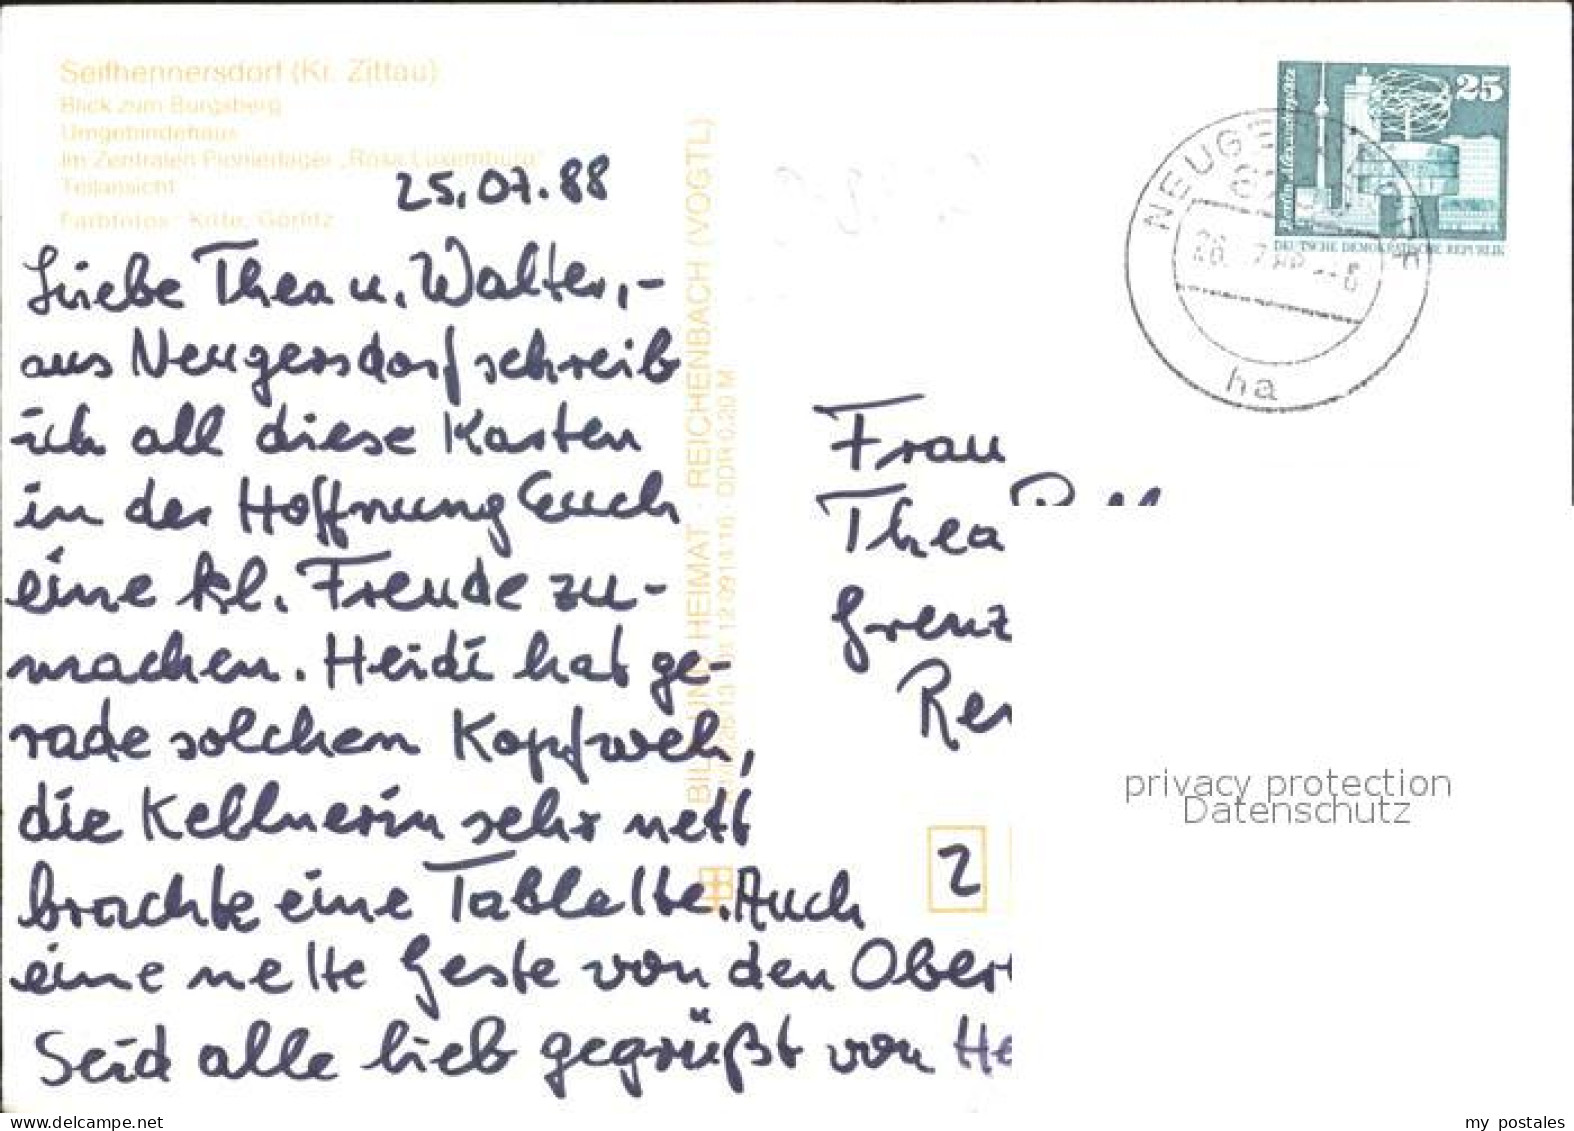 Seifhennersdorf (Kr. Zittau)
Blick zum Burgsberg
Umgebindehaus
Im Zentralen Pionierlager „Rosa Luxemburg“
Teilansicht
Farbfotos: Kitte, Görlitz
25.07.88
Liebe Thea u. Walter,-
aus Neugersdorf schreib
ich all diese Karten
in der Hoffnung Euch
eine kl. Freude zu-
machen. Heidi hat ge-
rade solchen Kopfweh,
die Kellnerin sehr nett
brachte eine Tablette. Auch
eine nette Geste von den Ober
Seid alle lieb gegrüßt von He
BILD UND HEIMAT · REICHENBACH (VOGTL)
DDR 0,20 M
25
Berlin, Alexanderplatz
DEUTSCHE DEMOKRATISCHE REPUBLIK
NEUGERSDORF
ha
Frau
Thea
Grenz
Ren
2
privacy protection
Datenschutz
my postales